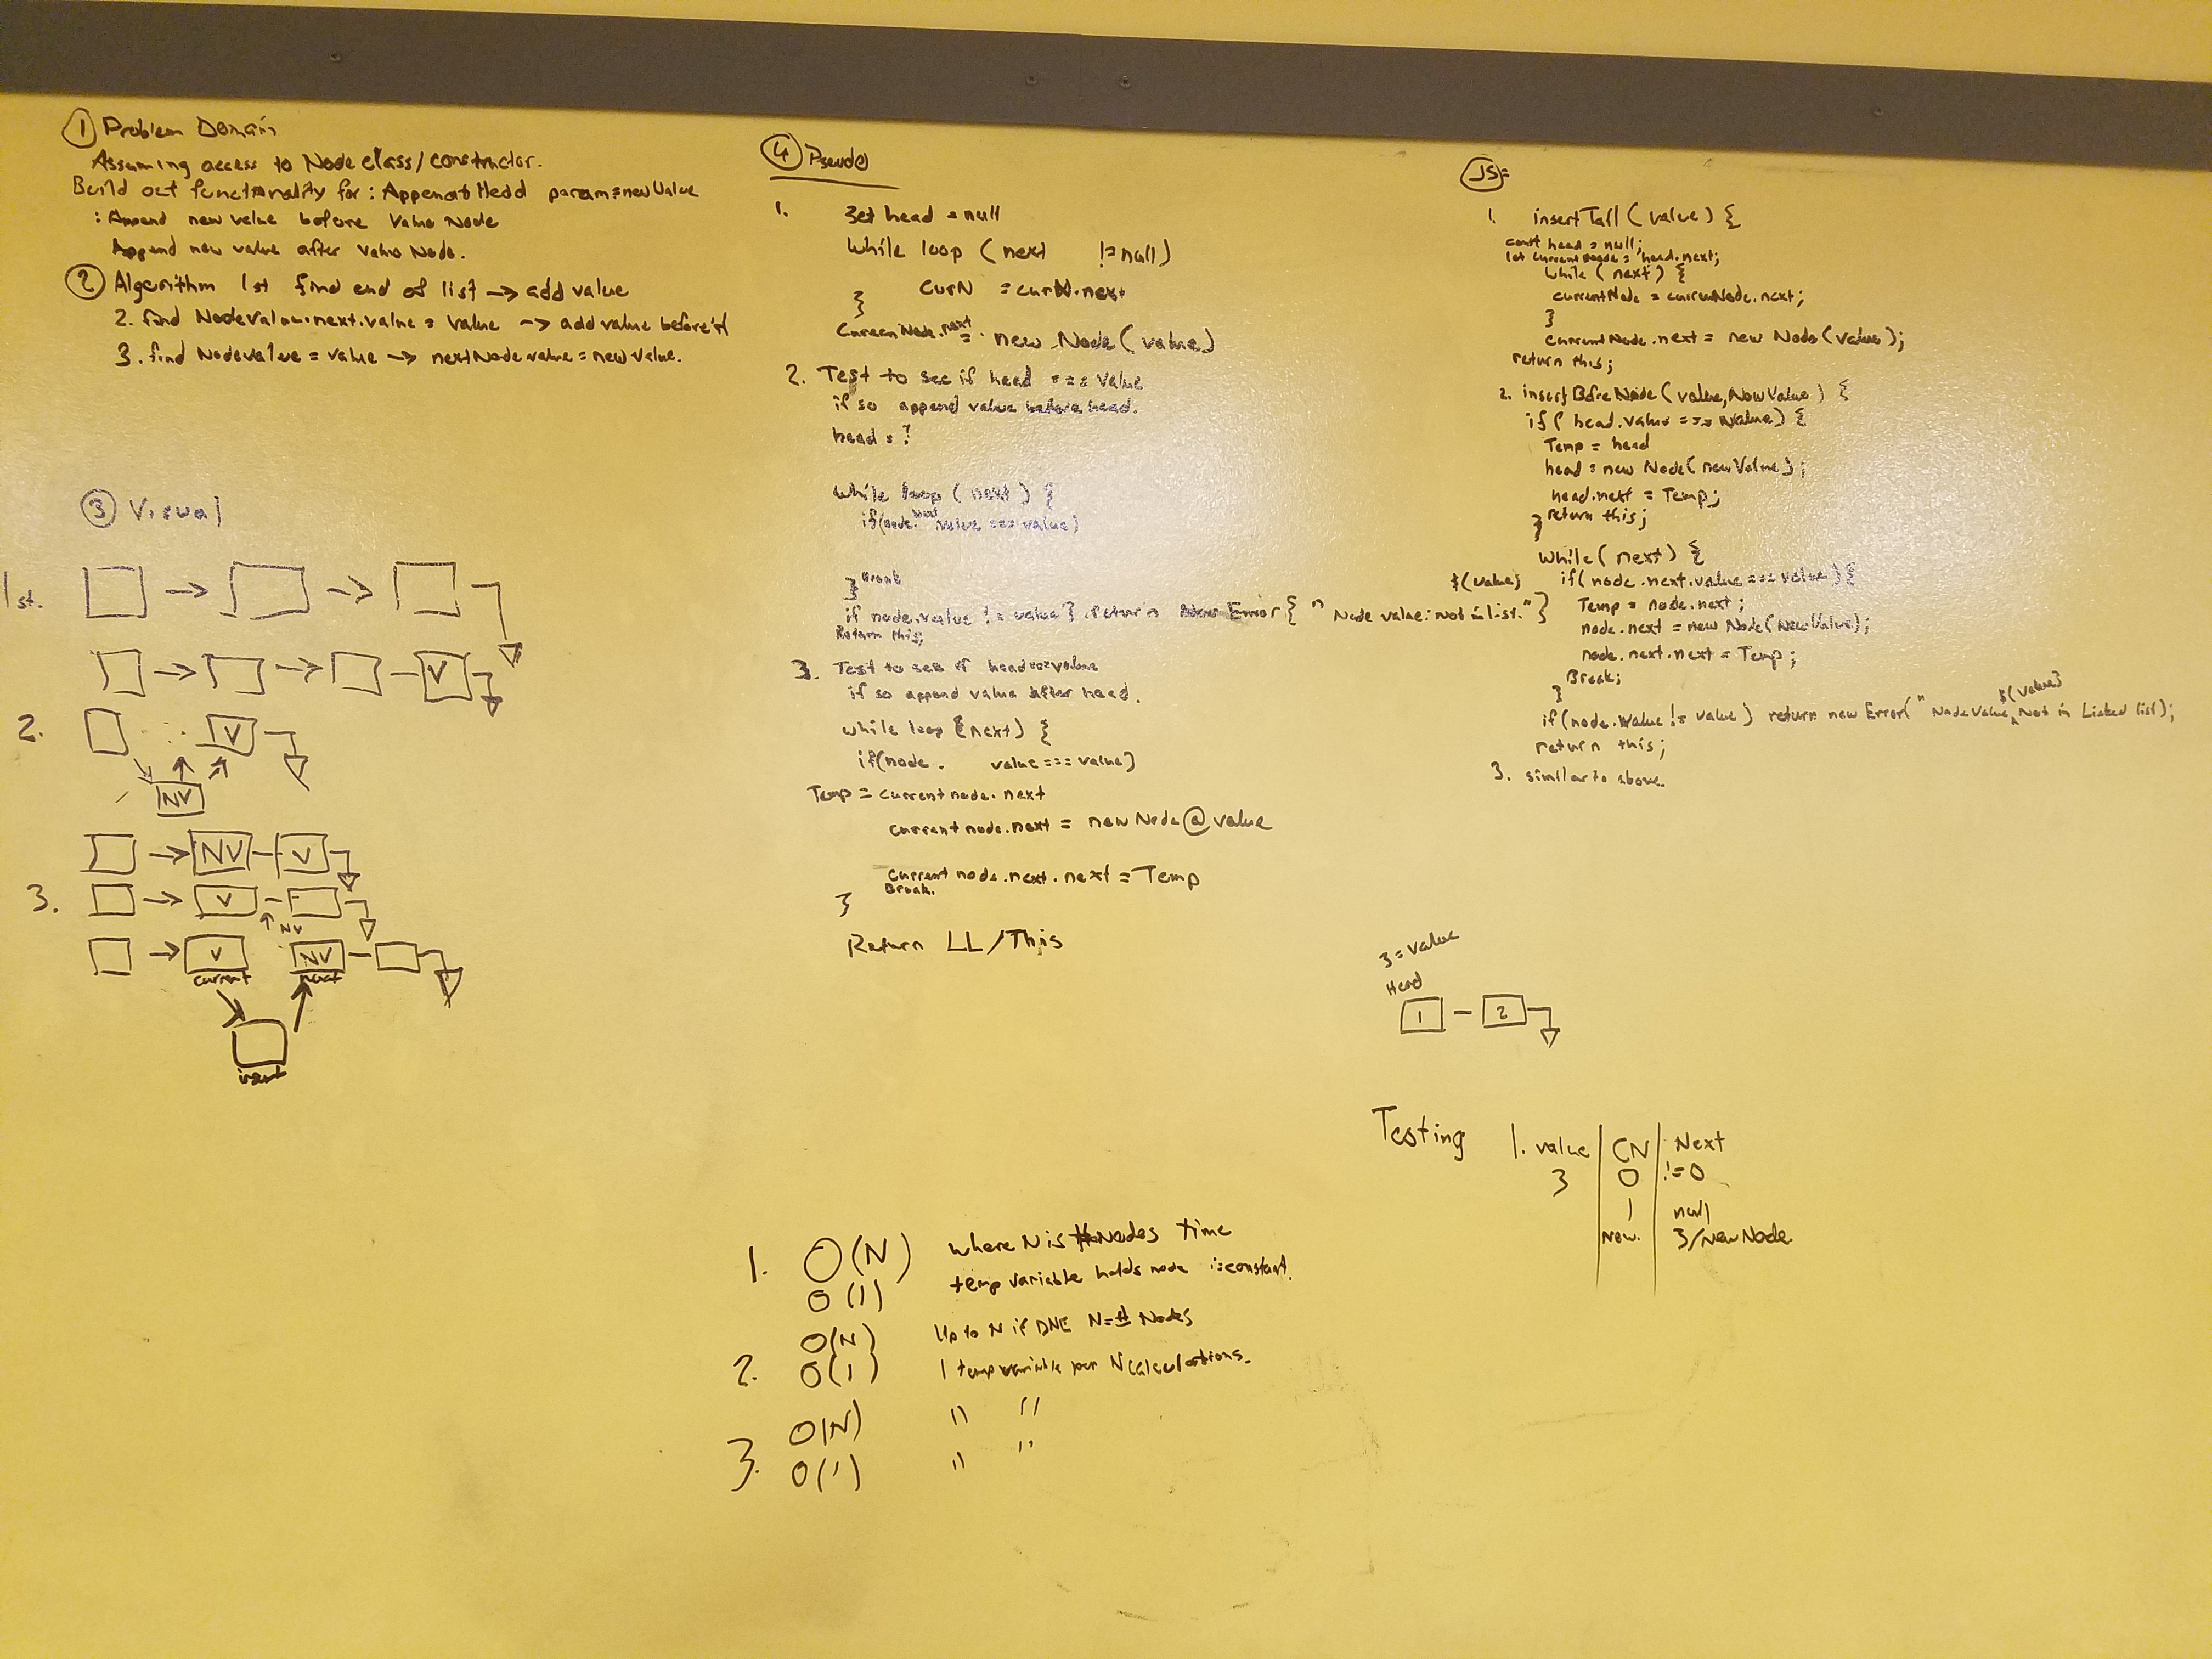 ① Problem Domain
Assuming access to Node class/constructor.
Build out functionality for: Append Head param=newValue
: Append new value before Value Node
Append new value after Value Node.
② Algorithm 1st find end of list → add value
2. find NodeValue.next.value = value → add value before it
3. find Nodevalue = value → nextNode value = new value.
③ Visual
1st.
V
2.
V
NV
NV V
3.
V
NV
V NV
current next
insert
④ Pseudo
1. Set head = null
While loop (next != null)
CurN = curN.next
}
CurrenNode.next = new Node(value)
2. Test to see if head === Value
if so append value before head.
head = ?
while loop (next) {
if(node.next value === value)
} Break
if node.value != value} return New Error{" Node value: not in list."}
$(value)
Return this;
3. Test to see if head === value
if so append value after head.
while loop {next) {
if(node. value === value)
Temp = current node.next
current node.next = new Node @ value
current node.next.next = Temp
Break.
}
Return LL/This
1. O(N) where N is # Nodes time
O(1) temp variable holds node is constant.
O(N) Up to N if DNE N=# Nodes
2. O(1) 1 temp variable per N calculations.
O(N) " "
3. O(1) " "
JS:
1. insertTail(value) {
const head = null;
let currentNode = head.next;
while (next) {
currentNode = currenNode.next;
}
currentNode.next = new Node(value);
return this;
2. insertBfreNode(value, NewValue) {
if( head.value === value) {
Temp = head
head = new Node(newValue);
head.next = Temp;
} return this;
while(next) {
if(node.next.value === value){
Temp = node.next;
node.next = new Node(NewValue);
node.next.next = Temp;
Break;
}
$(value)
if(node.value != value) return new Error(" NodeValue, Not in Linked list);
return this;
3. similar to above.
3 = value
Head
1 2
Testing
1. value CN Next
3 0 != 0
1 null
new. 3/newNode